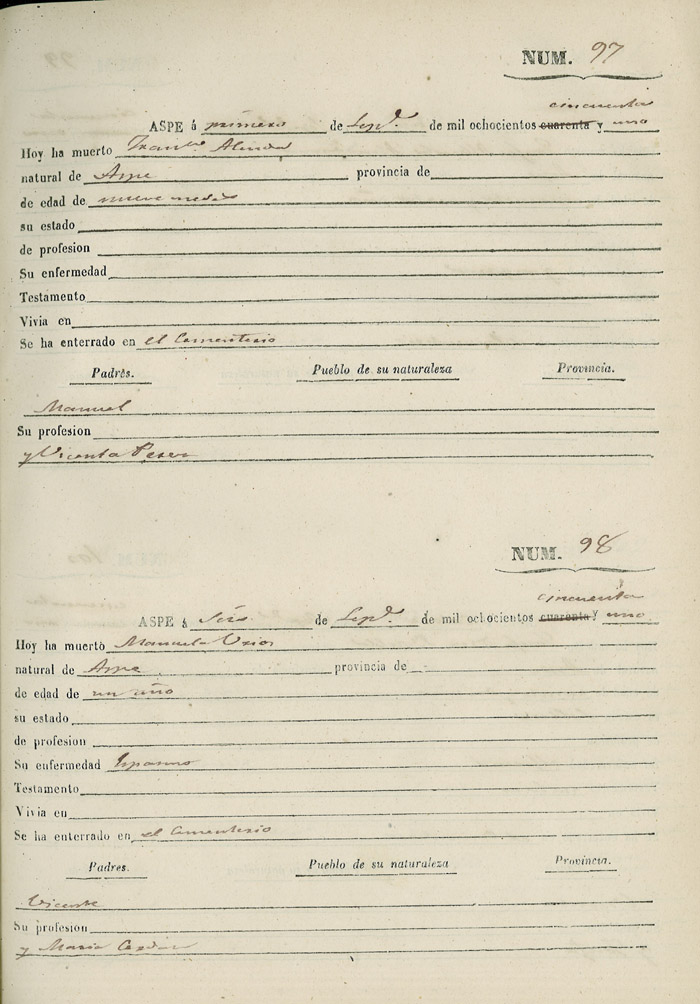 NUM. 97
cincuenta
ASPE á primero de Sepe. de mil ochocientos cuarenta y uno
Hoy ha muerto Franco.
natural de Aspe provincia de
de edad de nueve meses
su estado
de profesion
Su enfermedad
Testamento
Vivia en
Se ha enterrado en el Cementerio
Padres. Pueblo de su naturaleza Provincia.
Manuel
Su profesion
y Vicenta
NUM. 98
cincuenta
ASPE á Seis de Sepe. de mil ochocientos cuarenta y uno
Hoy ha muerto Manuela
natural de Aspe provincia de
de edad de un año
su estado
de profesion
Su enfermedad Espasmo
Testamento
Vivia en
Se ha enterrado en el Cementerio
Padres. Pueblo de su naturaleza Provincia.
Vicente
Su profesion
y Maria